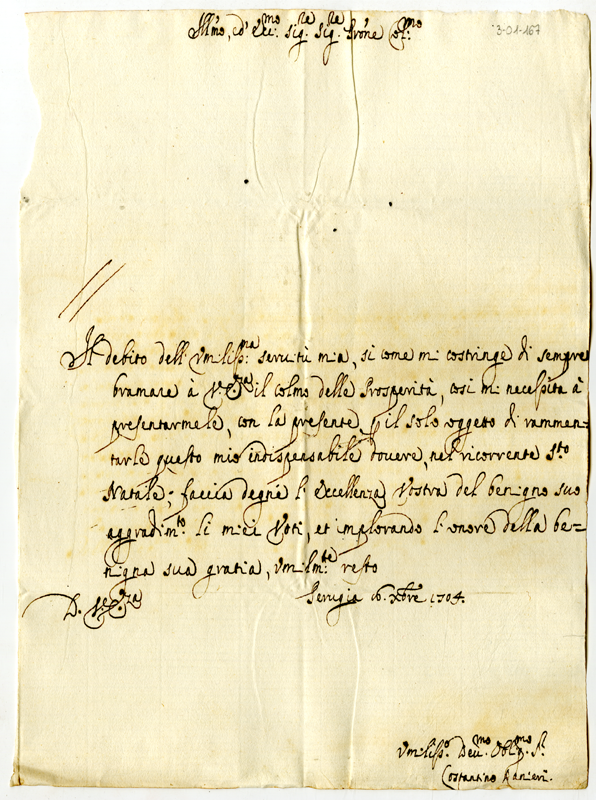 Ill:mo, ed' Ecc:mo Sig:re Sig:re Pr'one Col:mo
3-01-167
Il debito dell' Vmiliss:ma seruitù mia, si come mi costringe di sempre
bramare à V:Ecc:za il colmo delle Prosperità, così mi necessita à
presentarmele, con la presente, p il solo oggetto di rammen=
tarle questo mio indispensabile douere, nel ricorrente S:to
Natale; faccia degne l' Eccellenza Vostra del benigno suo
aggradim:to li miei Voti, et implorando l' onore della be=
nigna sua gratia, vmilm:te resto
D. V:Ecc:za
Perugia 16. Xbre 1704.
Vmiliss:o Deu:mo Obl:mo S:r
Costantino Ranieri.